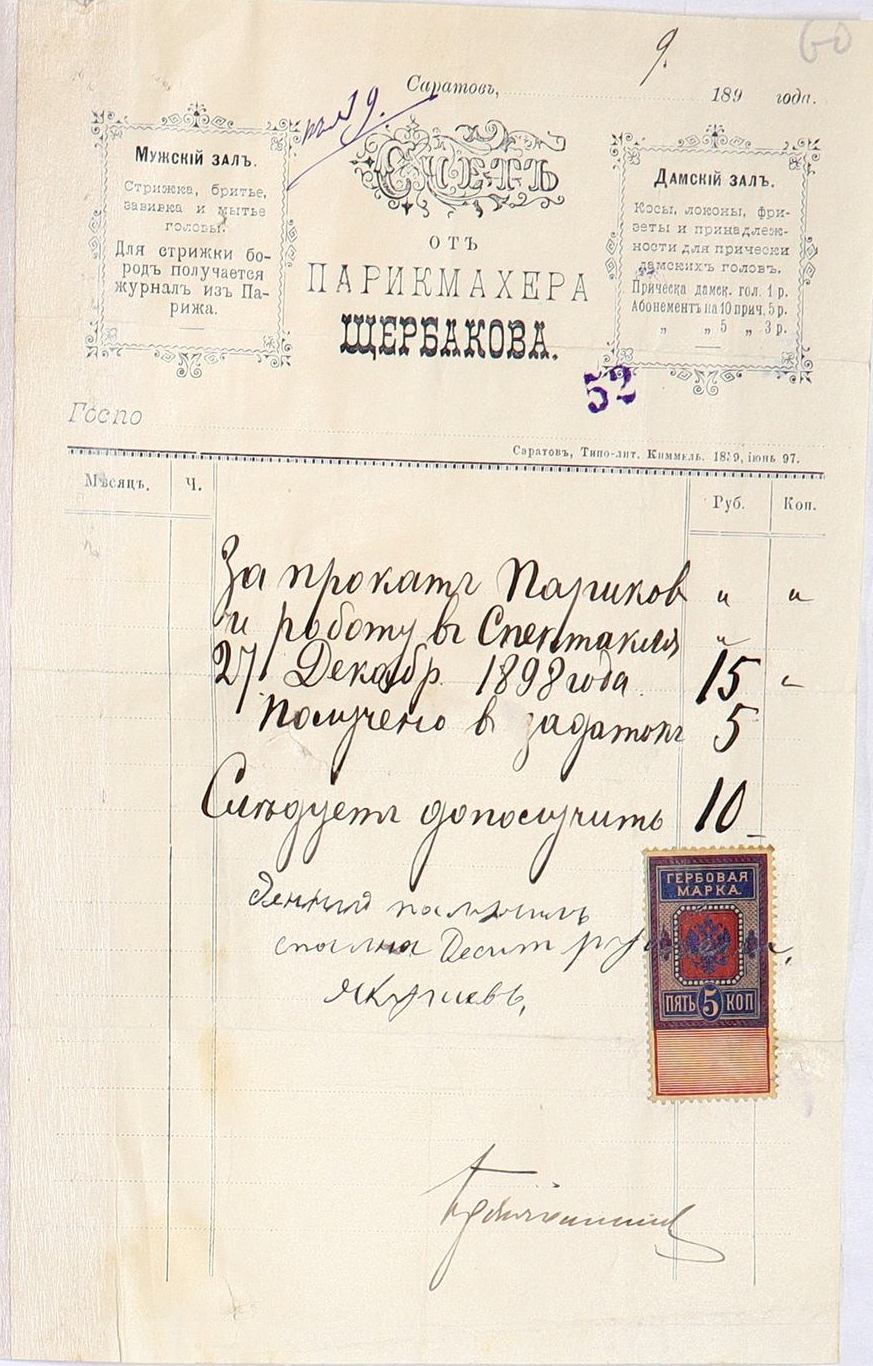 60
9.
Саратовъ, 189 года.
19.
Мужскій залъ.
Стрижка, бритье,
завивка и мытье
головы.
Для стрижки бо-
родъ получается
журналъ изъ Па-
рижа.
Счетъ
отъ
ПАРИКМАХЕРА
ЩЕРБАКОВА.
Дамскій залъ.
Косы, локоны, фри-
зеты и принадлеж-
ности для прически
дамскихъ головъ.
Прическа дамск. гол. 1 р.
Абонементъ на 10 прич. 5 р.
„ „ 5 „ 3 р.
52
Госпо
Саратовъ, Типо-лит. Киммель. 1889, іюнь 97.
Мѣсяцъ. Ч. Руб. Коп.
За прокатъ Париков " "
и роботу въ Спектакля "
27 Декабр 1898 года 15 "
Получено в задатокъ 5
Слѣдуетъ дополучить 10
Денги получилъ
сполна Десит
Якушевъ,
ГЕРБОВАЯ
МАРКА.
ПЯТЬ 5 КОП